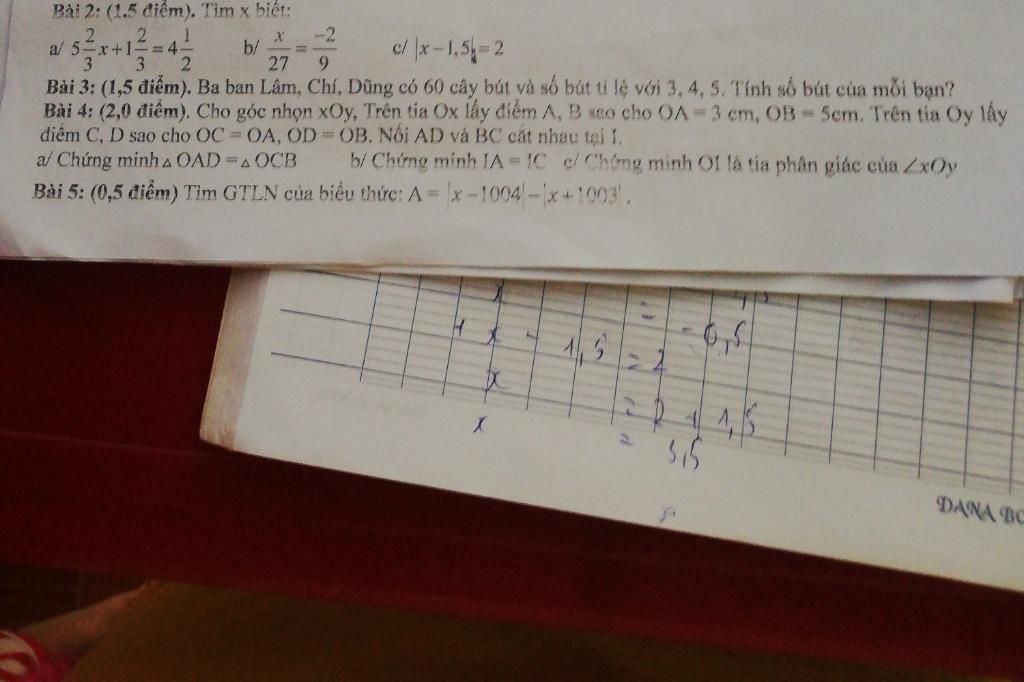 Bài 2: (1.5 điểm). Tìm x biết:
a/ 5 2/3 x + 1 2/3 = 4 1/2 b/ x/27 = -2/9 c/ |x − 1,5| = 2
Bài 3: (1,5 điểm). Ba bạn Lâm, Chí, Dũng có 60 cây bút và số bút tỉ lệ với 3, 4, 5. Tính số bút của mỗi bạn?
Bài 4: (2,0 điểm). Cho góc nhọn xOy, Trên tia Ox lấy điểm A, B sao cho OA = 3 cm, OB = 5cm. Trên tia Oy lấy
điểm C, D sao cho OC = OA, OD = OB. Nối AD và BC cắt nhau tại I.
a/ Chứng minh △ OAD = △ OCB b/ Chứng minh IA = IC c/ Chứng minh OI là tia phân giác của ∠xOy
Bài 5: (0,5 điểm) Tìm GTLN của biểu thức: A = |x − 1004| − |x + 1003| .
x = - 0,5
+ x - 1,5 = 2
x = 2 + 1,5
x = 3,5
DANA BO